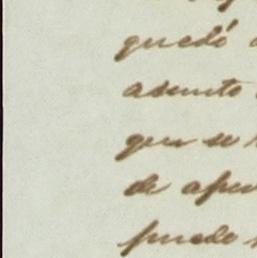 quedó
asunto
que se
de
puede